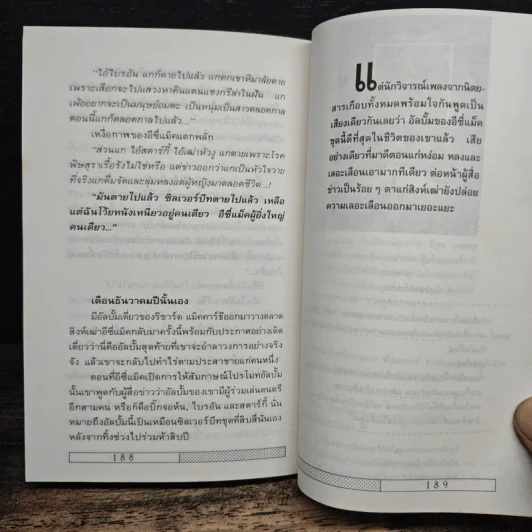 "ไอ้ไบรอัน แกก็ตายไปแล้ว แกตกเขาหิมาลัยตาย
เพราะเสือกจะไปแสวงหาดินแดนแชงกรีล่าในฝัน แก
เพ้ออยากจะเป็นมนุษย์อมตะ เป็นหนุ่มเป็นสาวตลอดกาล
ตอนนี้แกก็ตลอดกาลไปแล้ว..."
เหงื่อกาฬของอีซี่แม็คแตกพลัก
"ส่วนแก ไอ้สตาร์กี้ ไอ้เฒ่าหัวงู แกตายเพราะโรค
พิษสุราเรื้อรังไม่ใช่หรือ แต่ข่าวออกว่าแกเป็นหัวใจวาย
ที่จริงแกดื่มจัดและลุ่มหลงแต่ผู้หญิงมาตลอดชีวิต...!
"มันตายไปแล้ว ซิลเวอร์บีทตายไปแล้ว เหลือ
แต่ฉันโว้ยหนังเหนียวอยู่คนเดียว อีซี่แม็คผู้ยิ่งใหญ่
คนเดียว..."
เดือนธันวาคมปีนั้นเอง
มีอัลบั้มเดี่ยวของริชาร์ด แม็คคาร์ธีออกมาวางตลาด
สิงห์เฒ่าอีซี่แม็คกลับมาครั้งนี้พร้อมกับประกาศอย่างเด็ด
เดี่ยวว่านี่คืออัลบั้มสุดท้ายที่เขาจะอำลาวงการอย่างจริง
จัง แล้วเขาจะกลับไปทำไร่ตามประสาชายแก่คนหนึ่ง
ตอนที่อีซี่แม็คเปิดการให้สัมภาษณ์โปรโมทอัลบั้ม
นั้นเขาพูดกับผู้สื่อข่าวว่าอัลบั้มของเขามีผู้ร่วมเล่นดนตรี
อีกสามคน หรือก็คือบิ๊กจอห์น, ไบรอัน และสตาร์กี้ นั่น
หมายถึงอัลบั้มนี้เป็นเหมือนซิลเวอร์บีทชุดที่สิบสี่นั่นเอง
หลังจากทิ้งช่วงไปร่วมห้าสิบปี
188
แต่นักวิจารณ์เพลงจากนิตย-
สารเกือบทั้งหมดพร้อมใจกันพูดเป็น
เสียงเดียวกันเลยว่า อัลบั้มของอีซี่แม็ค
ชุดนี้ดีที่สุดในชีวิตของเขาแล้ว เสีย
อย่างเดียวที่มาดีตอนแก่หง่อม หลงและ
เลอะเลือนเอามากทีเดียว ต่อหน้าผู้สื่อ
ข่าวเป็นร้อย ๆ ตาแก่สิงห์เฒ่ายังปล่อย
ความเลอะเลือนออกมาเยอะแยะ
189